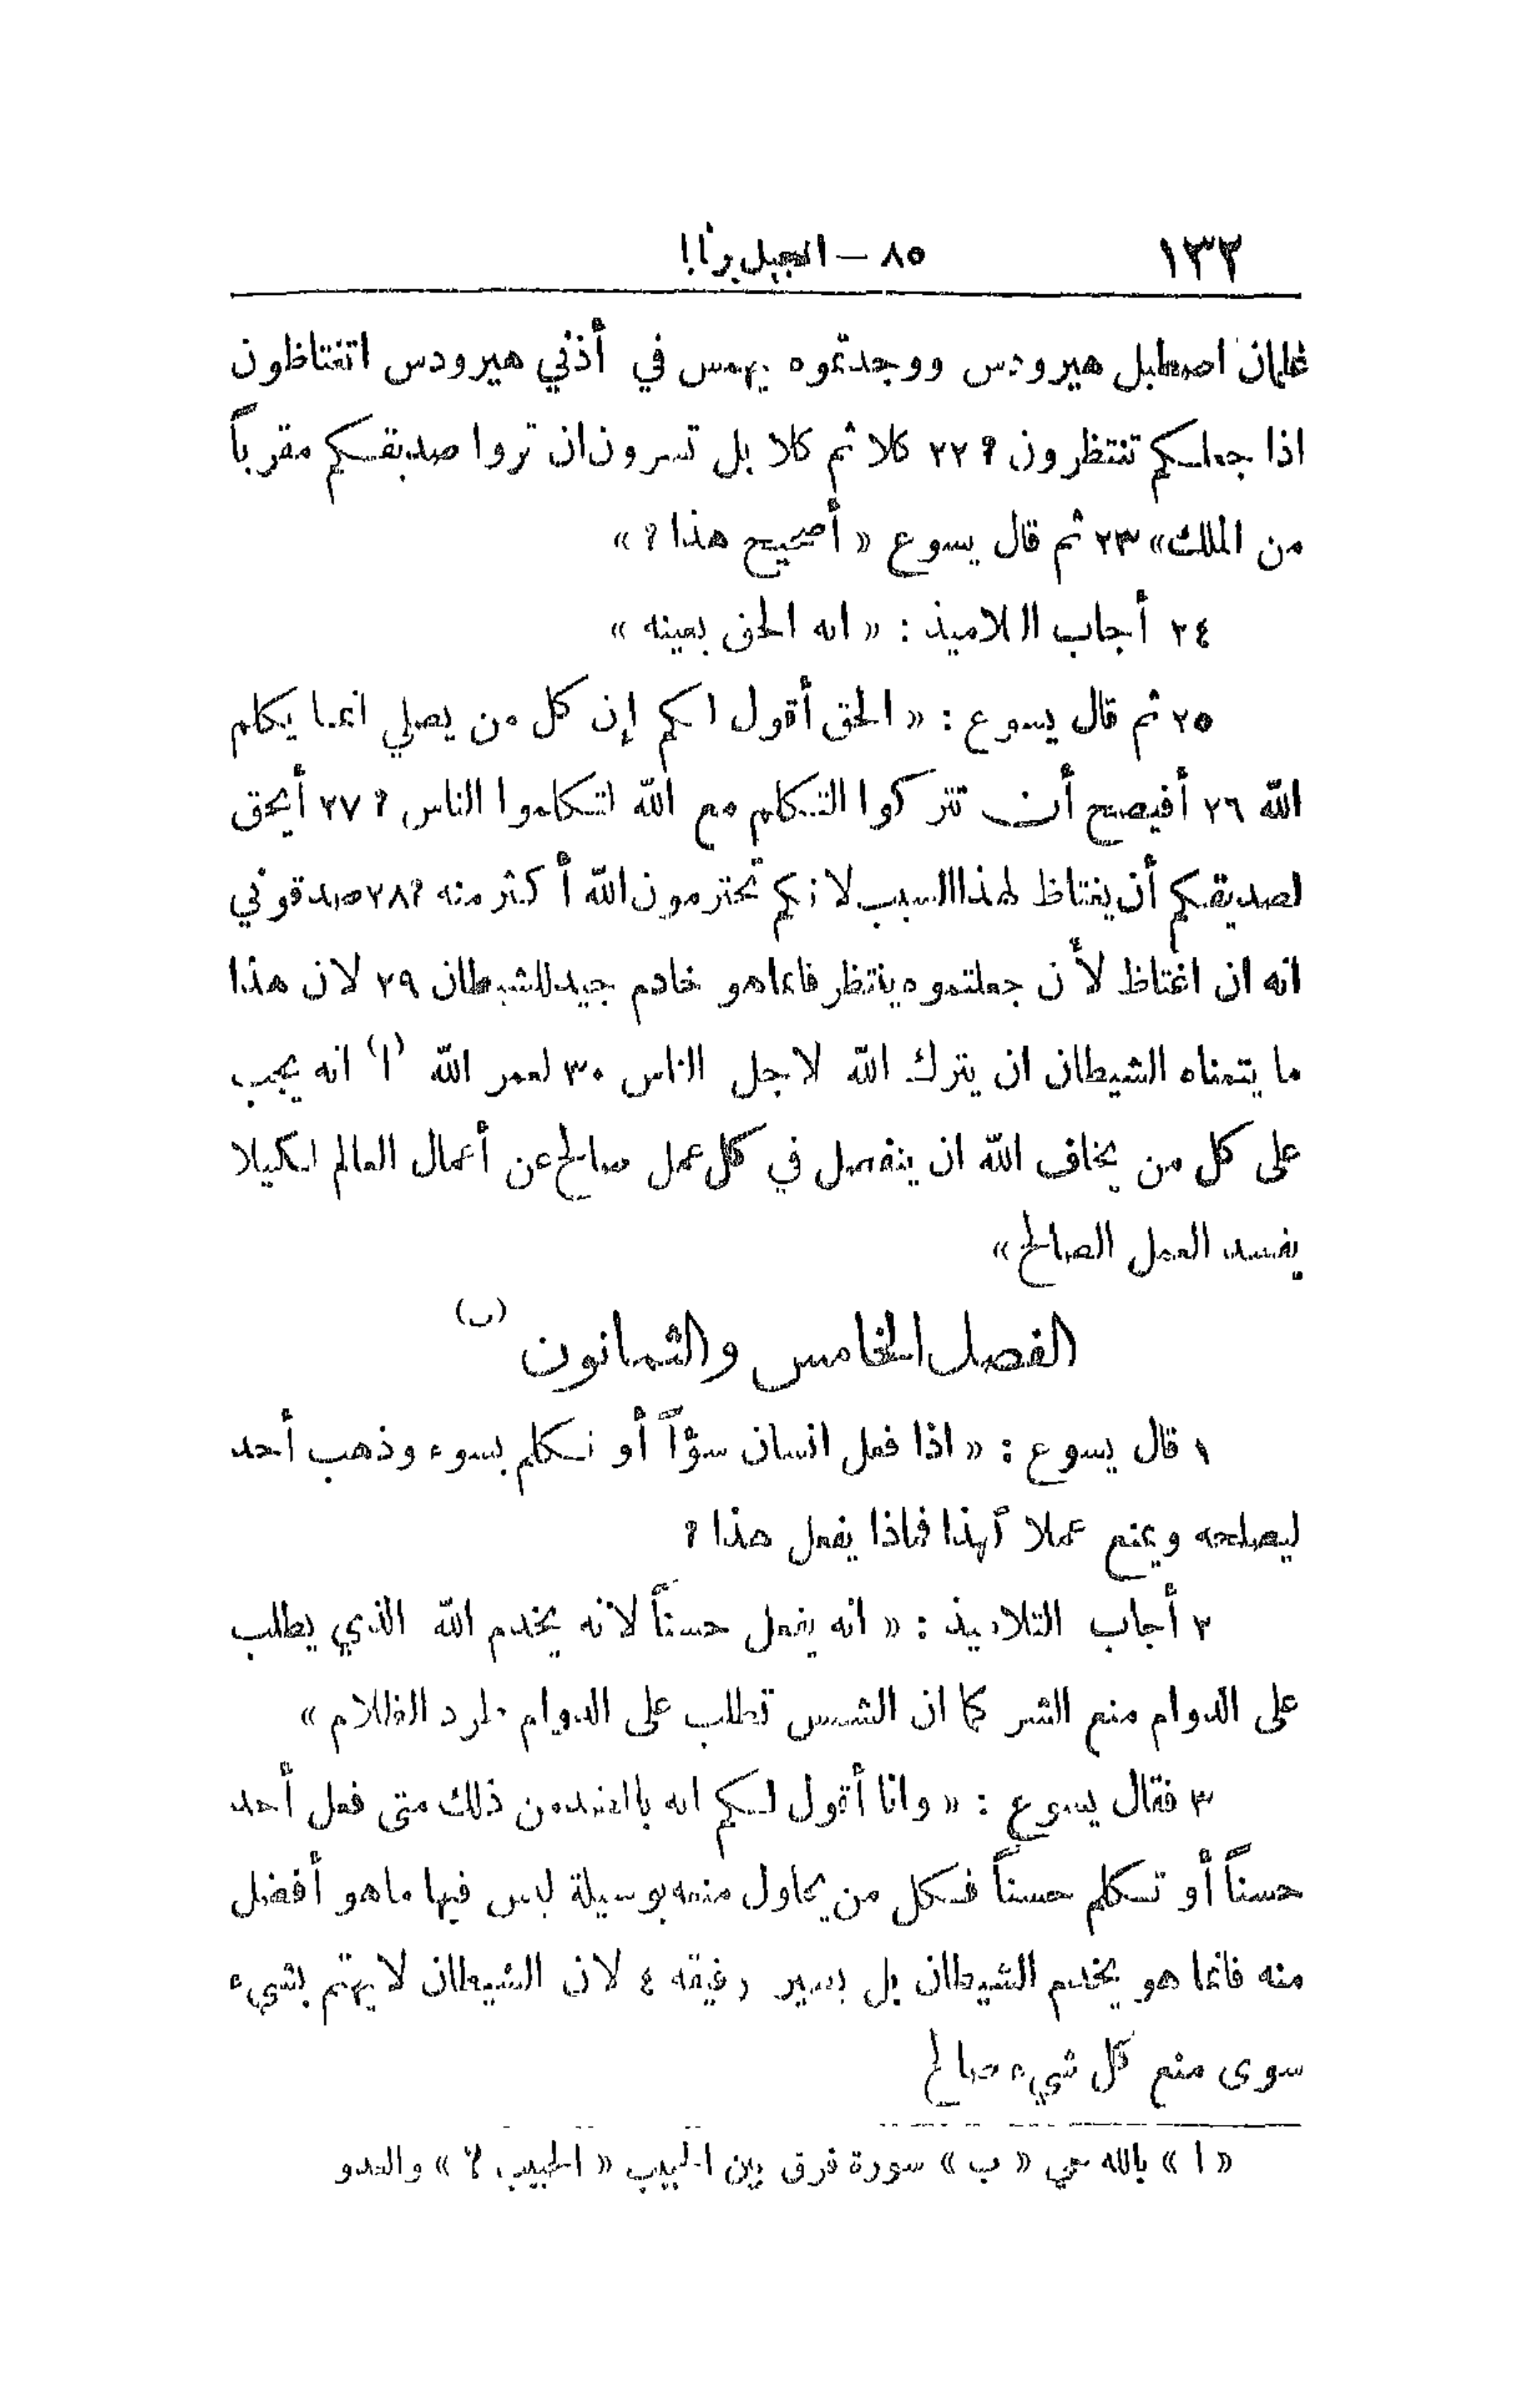 ١٣٢
٨٥ – انجيل برنابا
غلمان اصطبل هيرودس ووجدتموه يهمس في أذني هيرودس اتغتاظون
اذا جعلكم تنتظرون ؟ ٢٢ كلا ثم كلا بل تسرون ان تروا صديقكم مقرباً
من الملك» ٢٣ ثم قال يسوع « أصحيح هذا ؟ »
٢٤ أجاب التلاميذ : « انه الحق بعينه »
٢٥ ثم قال يسوع : « الحق أقول لكم إن كل من يصلي انما يكلم
الله ٢٦ أفيصح أن تتركوا التكلم مع الله لتكلموا الناس ؟ ٢٧ أيحق
لصديقكم أن يغتاظ لهذا السبب لانكم تحترمون الله أكثر منه ؟ ٢٨ صدقوني
انه ان اغتاظ لأن جعلتموه ينتظر فانما هو خادم جيد للشيطان ٢٩ لان هذا
ما يتمناه الشيطان ان يترك الله لاجل الناس ٣٠ لعمر الله (ا) انه يجب
على كل من يخاف الله ان ينفصل في كل عمل صالح عن أعمال العالم لكيلا
يفسد العمل الصالح »
الفصل الخامس والثمانون (ب)
١ قال يسوع : « اذا فعل انسان سؤاً أو تكلم بسوء وذهب أحد
ليصلحه ويمنع عملا كهذا فماذا يفعل هذا ؟
٢ أجاب التلاميذ : « انه يفعل حسناً لانه يخدم الله الذي يطلب
على الدوام منع الشر كما ان الشمس تطلب على الدوام طرد الظلام »
٣ فقال يسوع : « وانا أقول لكم انه بالضد من ذلك متى فعل أحد
حسناً أو تكلم حسناً فكل من يحاول منعه بوسيلة ليس فيها ما هو أفضل
منه فانما هو يخدم الشيطان بل يصير رفيقه ٤ لان الشيطان لا يهتم بشيء
سوى منع كل شيء صالح
« ا » بالله حي « ب » سورة فرق بين الحبيب « الحبيب ؟ » والعدو